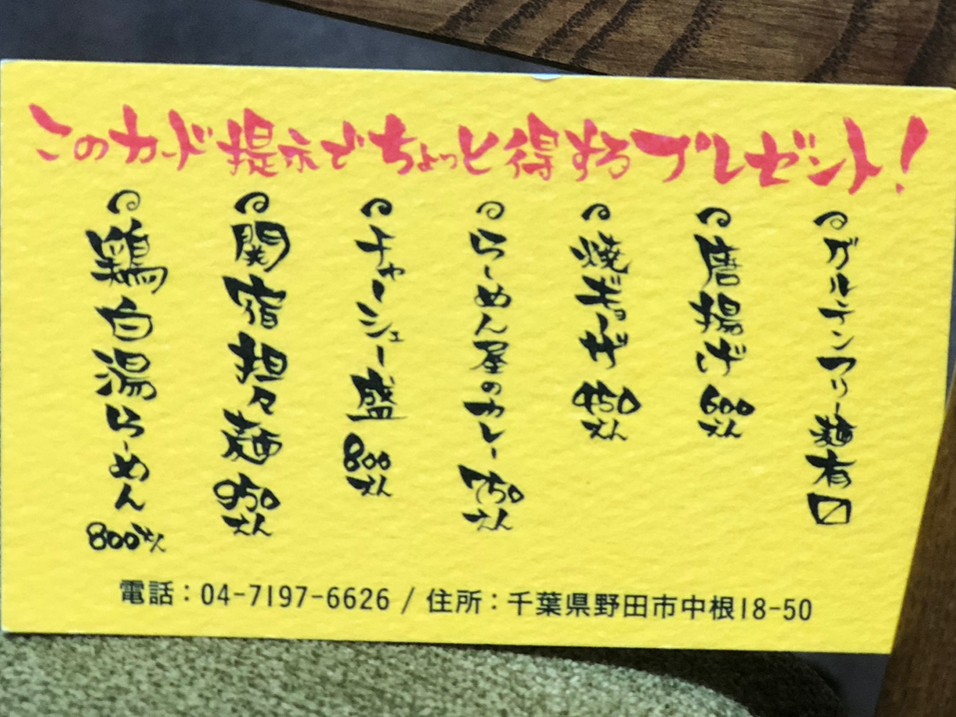 このカード提示でちょっと得するプレゼント!
グルテンフリー麺有〼
唐揚げ 600えん
焼ギョーザ 450えん
らーめん屋のカレー 750えん
チャーシュー盛 800えん
関宿担々麺 950えん
鶏白湯らーめん 800えん
電話：04-7197-6626 / 住所：千葉県野田市中根18-50